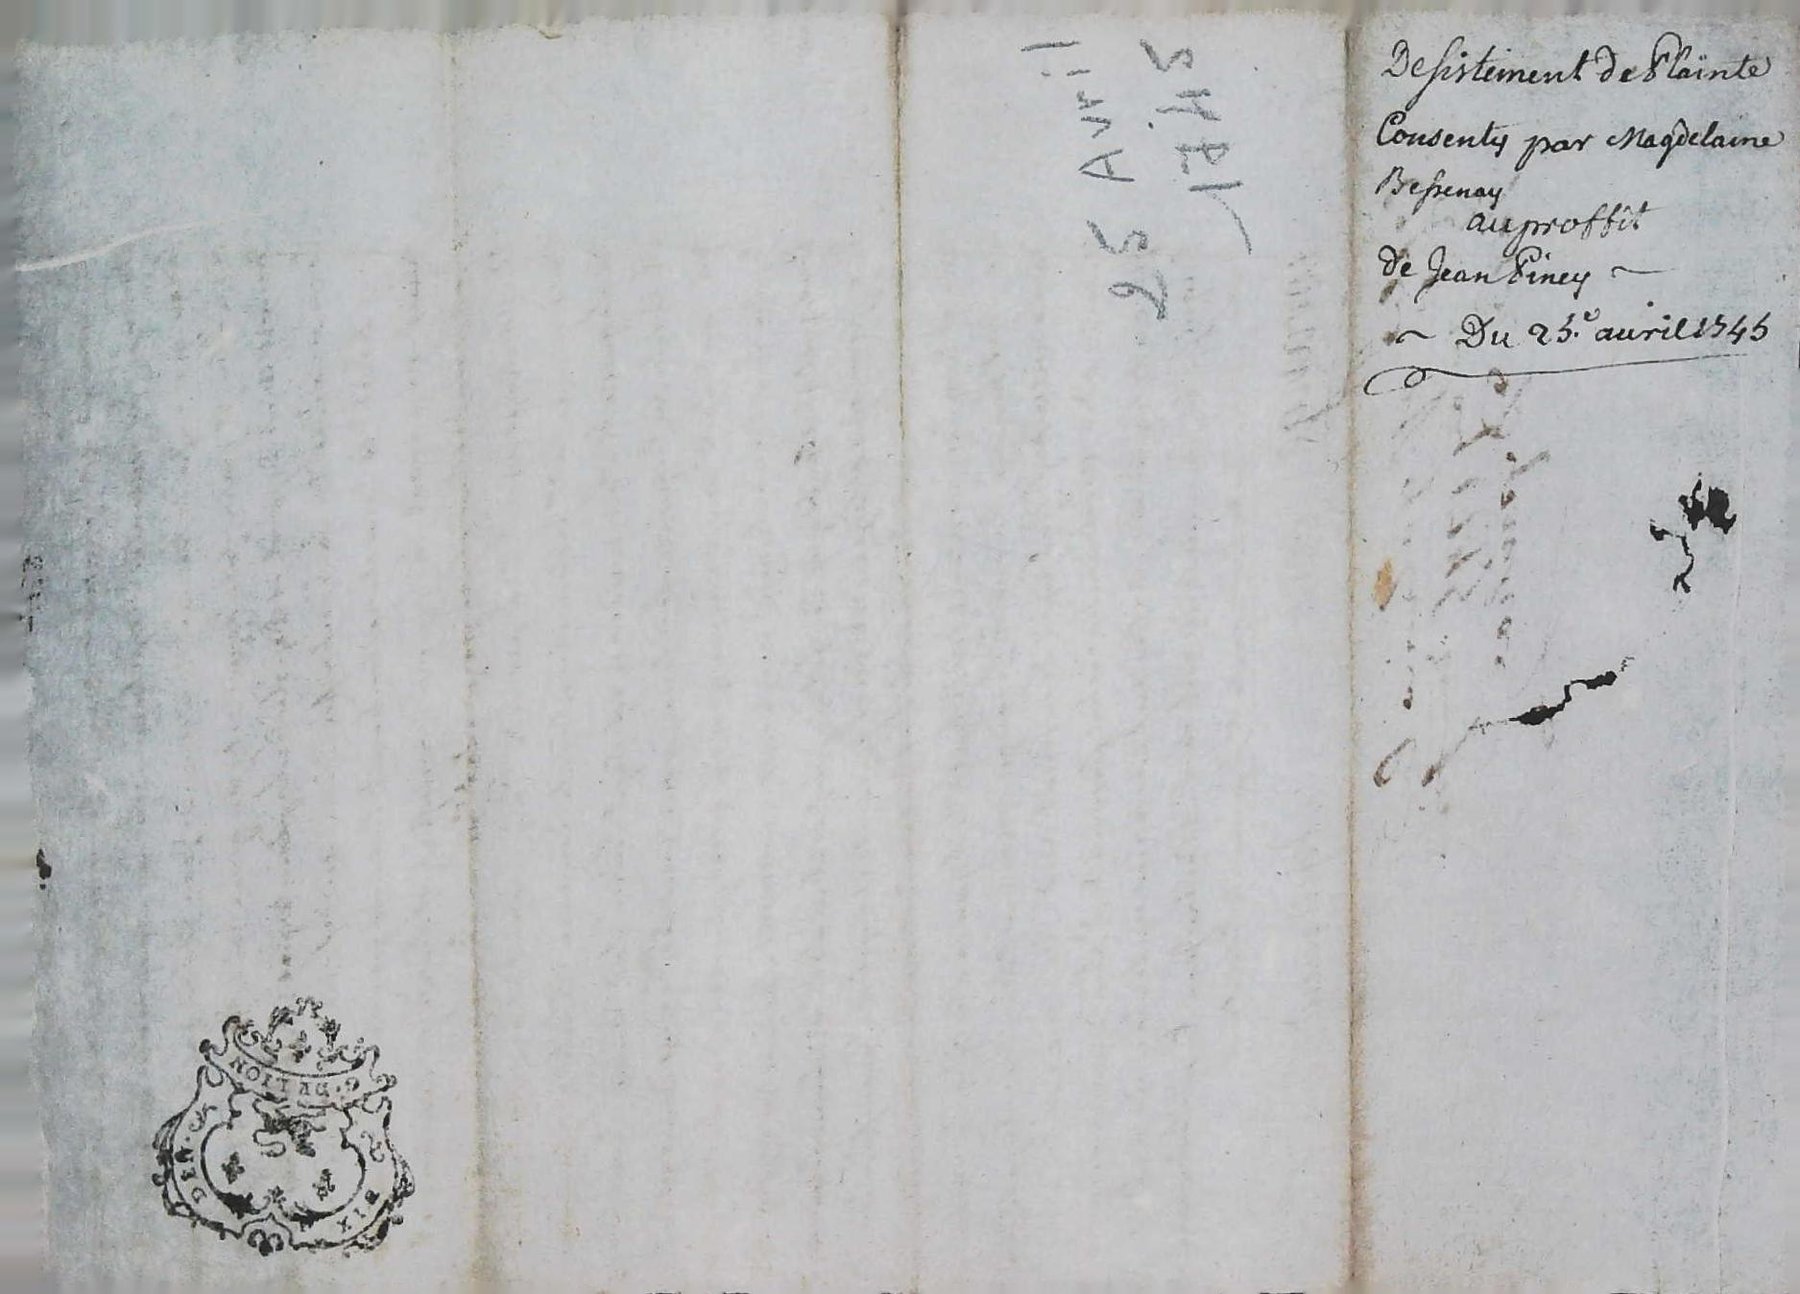 Desistement de Plainte
Consenty par Magdelaine
Bessenay
au proffit
de Jean Piney
Du 25.e auril 1745
25 Avril
1745
G. DE LION
SIX DEN.